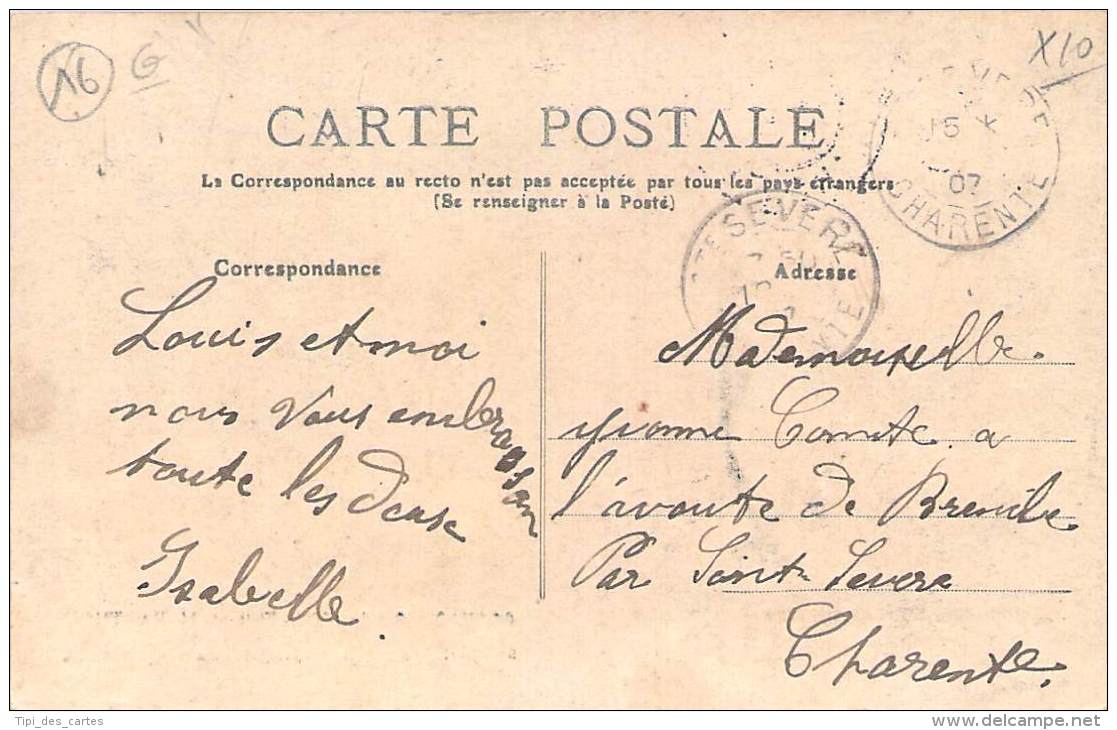 16
G
X10
CARTE POSTALE
La Correspondance au recto n'est pas acceptée par tous les pays étrangers
(Se renseigner à la Poste)
15
07
CHARENTE
STE SEVERE
Correspondance
Adresse
Louis et moi
nous vous embrassan
toute les deuse
Isabelle.
Mademoiselle
Yvonne Comte a
de
Par Saint Severe
Charente.
Tipi_des_cartes
www.delcampe.net